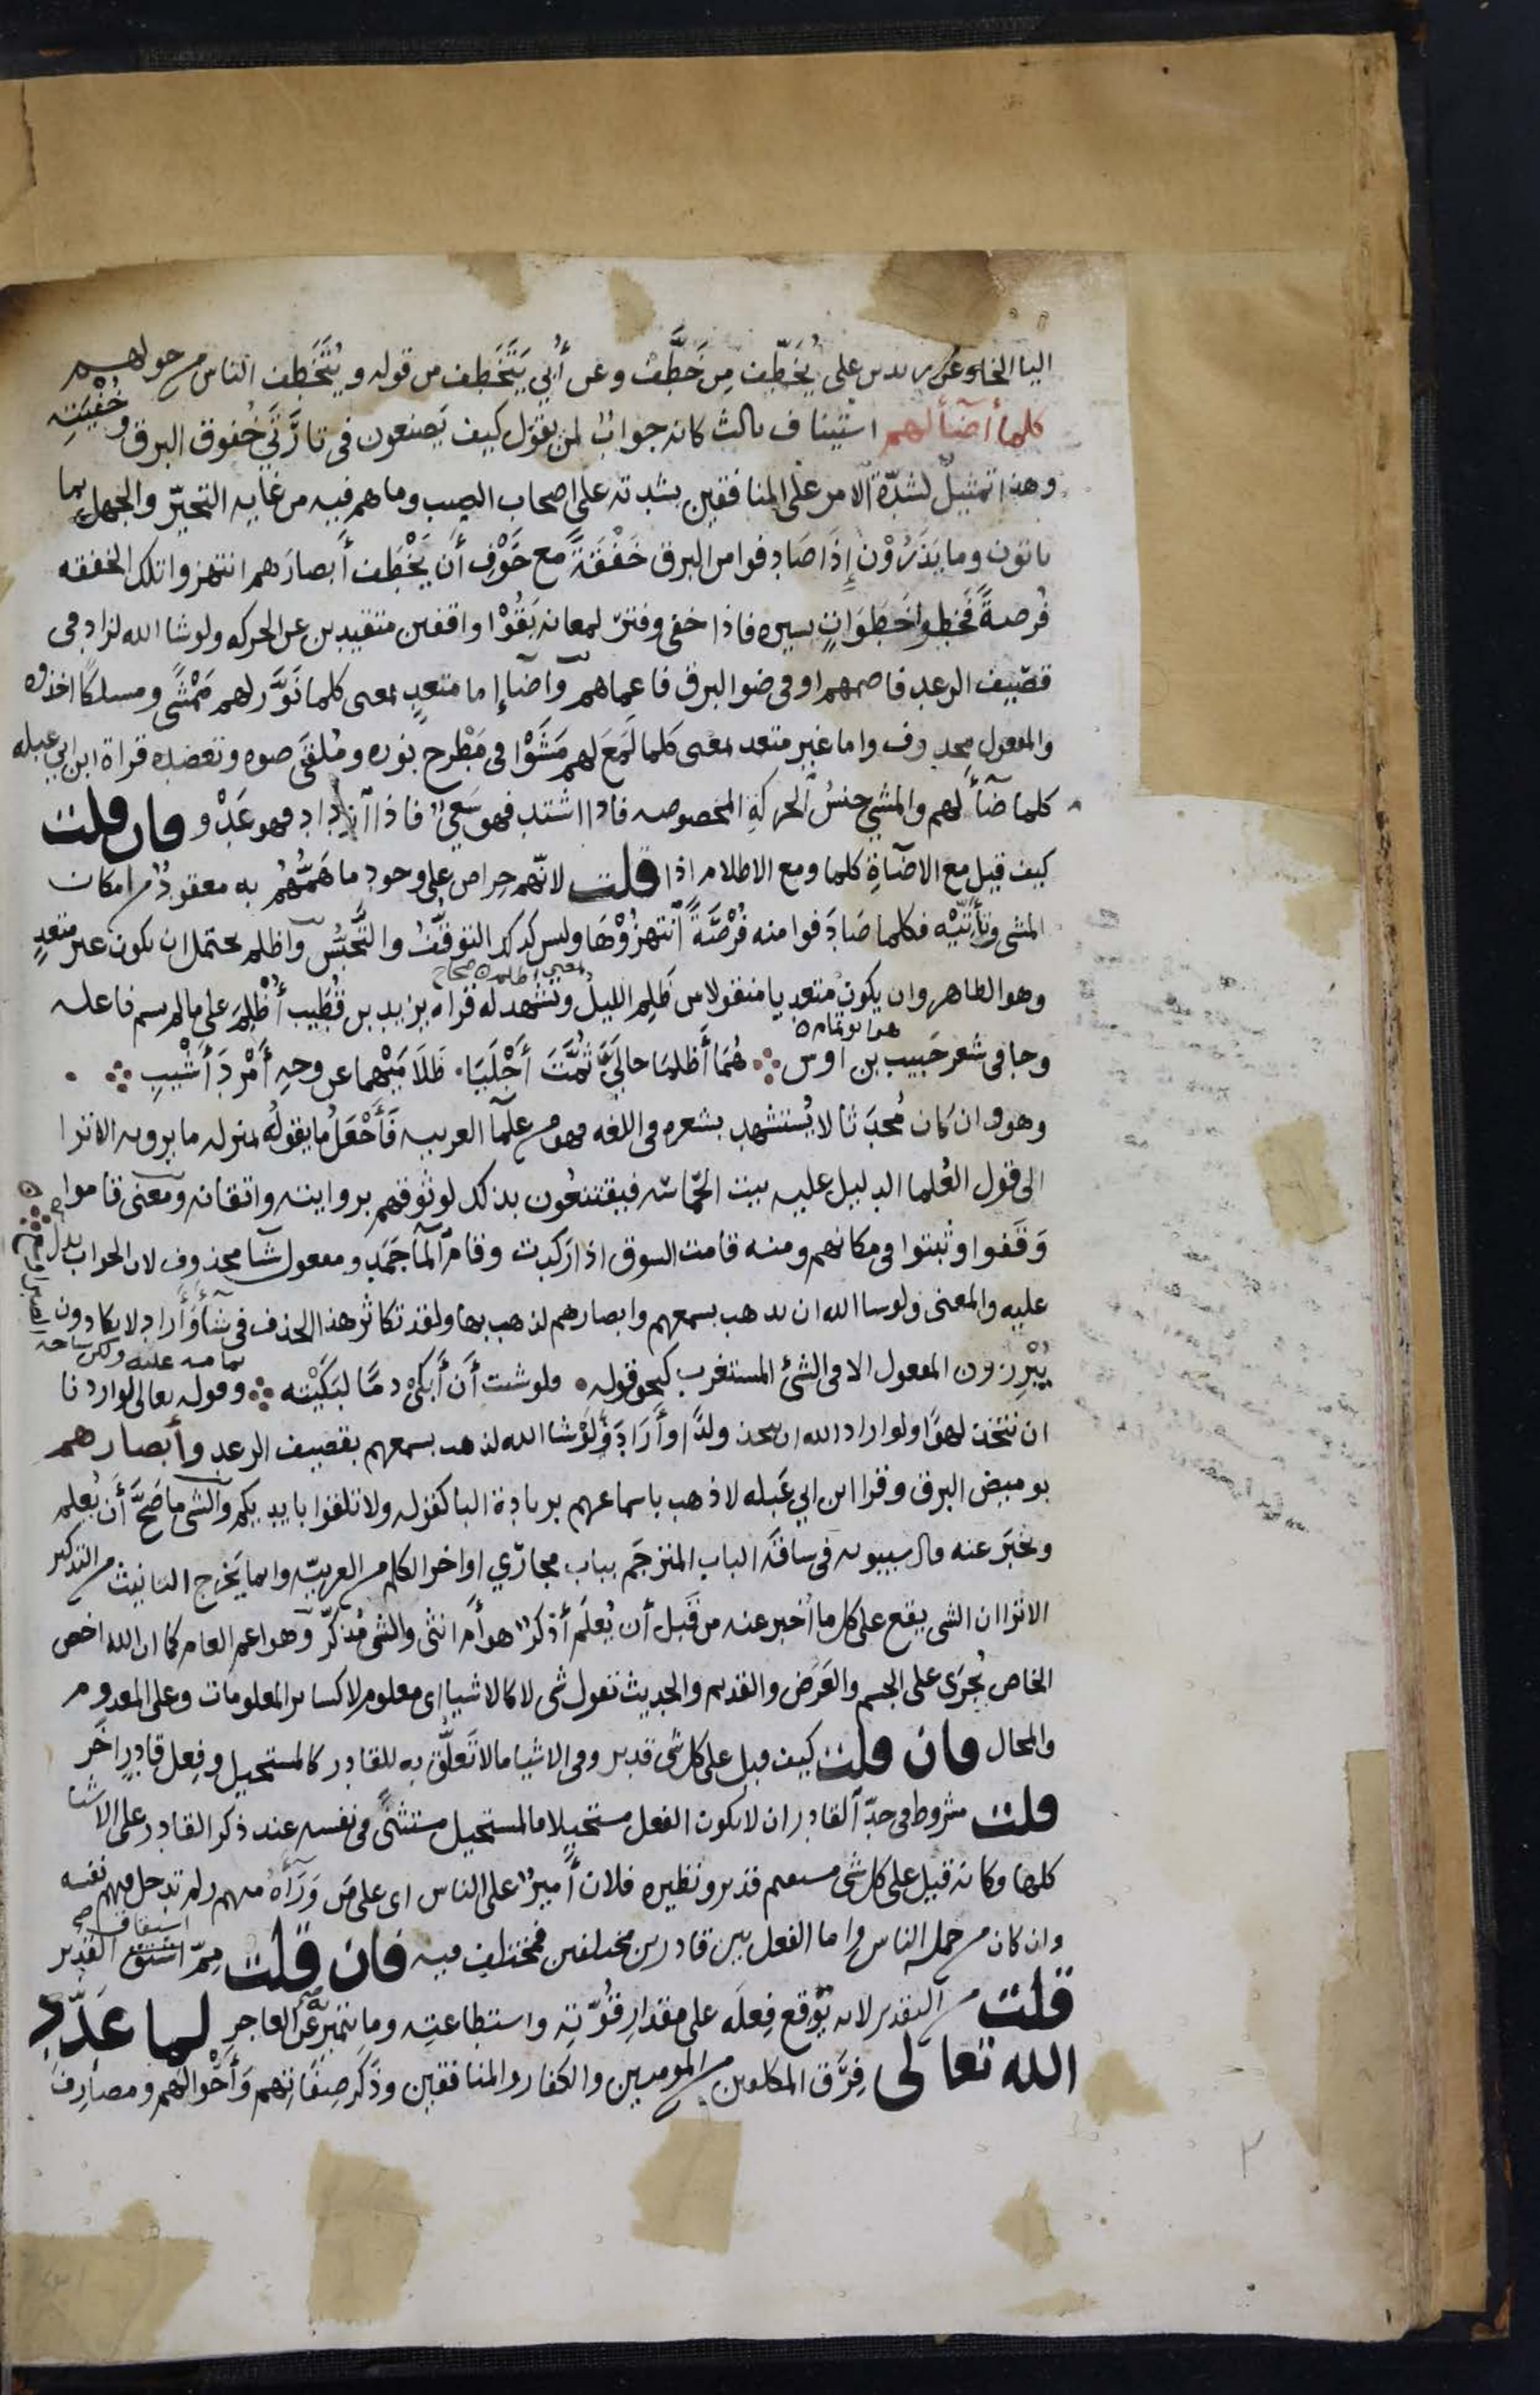 اليا الخا وعن زيد بن على يُخَطِّف مِن خَطَّف وعن أُبي يَتَخَطف من قوله ويُتَخَطف الناس من حولهم
كلما أضآ لهم استيناف ثالث كانه جواب لمن يقول كيف يَصنعون فى تارَتَي خُفوق البرق وخُفْيَتِه
وهذا تمثيل لشدّة الامر على المنافقين بشدته على اصحاب الصيب وما هم فيه من غايه التحيّر والجهل بما
ياتون وما يَذَرُوْن إِذَا صَادفوا من البرق خَفْقَةً مع خَوْفِ أن يَخْطَف أبصارَهم انتهزوا تلك الخفقه
فُرصةً فَخطوا خَطَوَاتٍ يسيره فاذا خفى وفتر لمعانه بَقُوْا واقفين متقيدين عن الحركه ولو شا الله لزاد فى
قصيف الرعد فاصمهم او فى ضو البرق فاعماهم وآضا إما متعدٍ بمعنى كلما نَوَّر لهم مَمْشًى ومسلكًا اخذوه
والمفعول محذوف واما غير متعد بمعنى كلما لَمَعَ لهم مَشَوْا فى مَطْرح نوره ومُلقَى ضوه وتعضده قراة ابن ابي عبله
كلما ضآ لهم والمشي جنسُ الحركةِ المخصوصه فاذا اشتد فهو سَعي فاذا ازداد فهو عَدْو فان قلت
كيف قيل مع الاضآةِ كلما ومع الاظلام اذا قلت لانّهم حِراص على وجود ما هَمُّهُم به معقودٌ من امكان
المشى وتأتّيْه فكلما صَادَفوا منه فُرْصَةً انتهزُوْهَا وليس كذلك التوقّفُ والتَّحبُّس واظلم يحتمل ان يكون غير متعدٍ
بمعنى اظلم صحاح
وهو الظاهر وان يكون متعديا منقولا من ظَلِم الليلُ وتَشْهد له قراة يزيد بن قُطَيب أُظْلِمَ على ما لم يسم فاعله
هو ابو تمام
وجا فى شعر حَبيب بن اوس هُمَا أَظلمَا حالَيَّ ثُمَّتَ أَجْلَيَا ظَلَامَيْهما عن وجهِ أَمْرَدَ أَشْيبِ
وهو وان كان مُحدَثا لا يُستشهد بشعره فى اللغه فهو من علمآ العربيه فَأَجْعَلُ ما يقولُه بمنزله ما يرويه الا ترا
الى قول العُلما الدليل عليه بيت الحماسه فيقتنعُون بذلك لوثوقهم بروايته واتقانه ومعنى قاموا
وَقَفوا وثبتوا فى مكانهم ومنه قامت السوق اذا رَكدت وقام المآ جَمَد ومفعول شآ محذوف لان الجواب يدل
عليه والمعنى ولو شا الله ان يذهب بسمعهم وابصارهم لذهب بها ولقد تكاثر هذا الحذف فى شآ وأَراد لا يكادون
يُبْرِزون المفعول الا فى الشئ المستغرب كنحو قوله فلو شئت أن أَبكى دمًا لبَكَيْته وقوله تعالى لو اردنا
عليه ولكن ساحة الصبر اوسع
ان نتخذ لهوًا ولو اراد الله ان يتخذ ولدًا وأَرَادَ ولَوْ شا الله لذهب بسمعهم بقصيف الرعد وأبصارهم
بوميض البرق وقرا ابن ابي عَبله لاذهب باسماعهم بزيادة البا كقوله ولا تلقوا بايديكم والشى ما صَحَّ أَن يُعلم
ويُخبَر عنه قال سيبويه فى ساقَة الباب المترجَم بباب مجارِي اواخر الكلم من العربيّه وانما يَخرج التانيث من التذكير
الا ترا ان الشى يقع على كل ما أُخبر عنه من قَبل أن يُعلَم أَذكر هو أم انثى والشى مُذكّر وهو اعم العام كما ان الله اخص
الخاص يُجرَى على الجسم والعَرَض والقديم والحديث تقول شى لا كالاشيا اى معلوم لا كساير المعلومات وعلى المعدوم
والمحال فان قلت كيف قيل على كل شى قدير وفى الاشيا ما لا تَعلّق به للقادر كالمستحيل وفِعل قادرٍ اخَر
قلت مشروط فى حدّ القادر ان لا يكون الفعل مستحيلا فالمستحيل مستثنًى فى نفسه عند ذكر القادر على الاشيا
كلها وكانه قيل على كل شى مستقيم قدير ونظيره فلان أَميرٌ على الناس اى على مَن وَرَآه منهم ولم تدخل فيهم نفسه
وان كان من جمله الناس واما الفعل بين قادرين مختلفين فمختلف فيه فان قلت مِمّ اشتق القدير
اشتقاق صح
قلت من التقدير لانه يُوْقِع فِعلَه على مقدارِ قُوّتِه واستطاعتِه وما يتميز به عن العاجزِ لما عَدَّد
الله تعالى فِرَّق المكلفين من المومنين والكفار والمنافقين وذَكَرَ صِفاتِهم وَأَحْوالَهُم ومصارِفَ